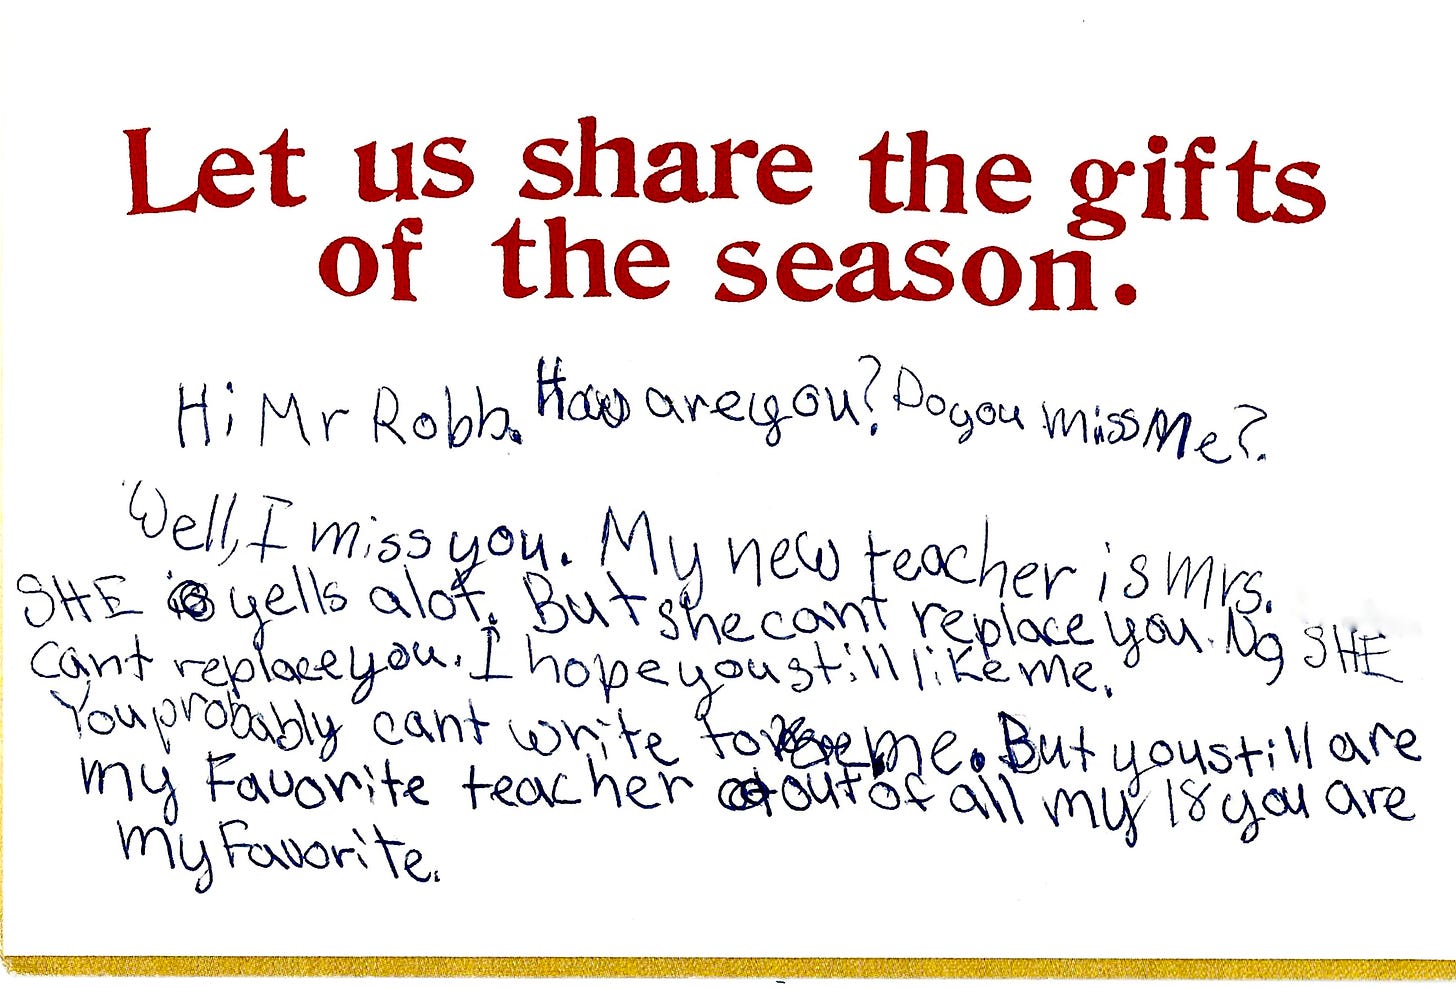 Let us share the gifts
of the season.
Hi Mr Robb. How are you? Do you miss Me?.
Well, I miss you. My new teacher is Mrs.
SHE yells alot. But she cant replace you. No SHE
cant replace you. I hope you still like me.
You probably cant write to me. But you still are
my Favorite teacher out of all my 18 you are
my Favorite.